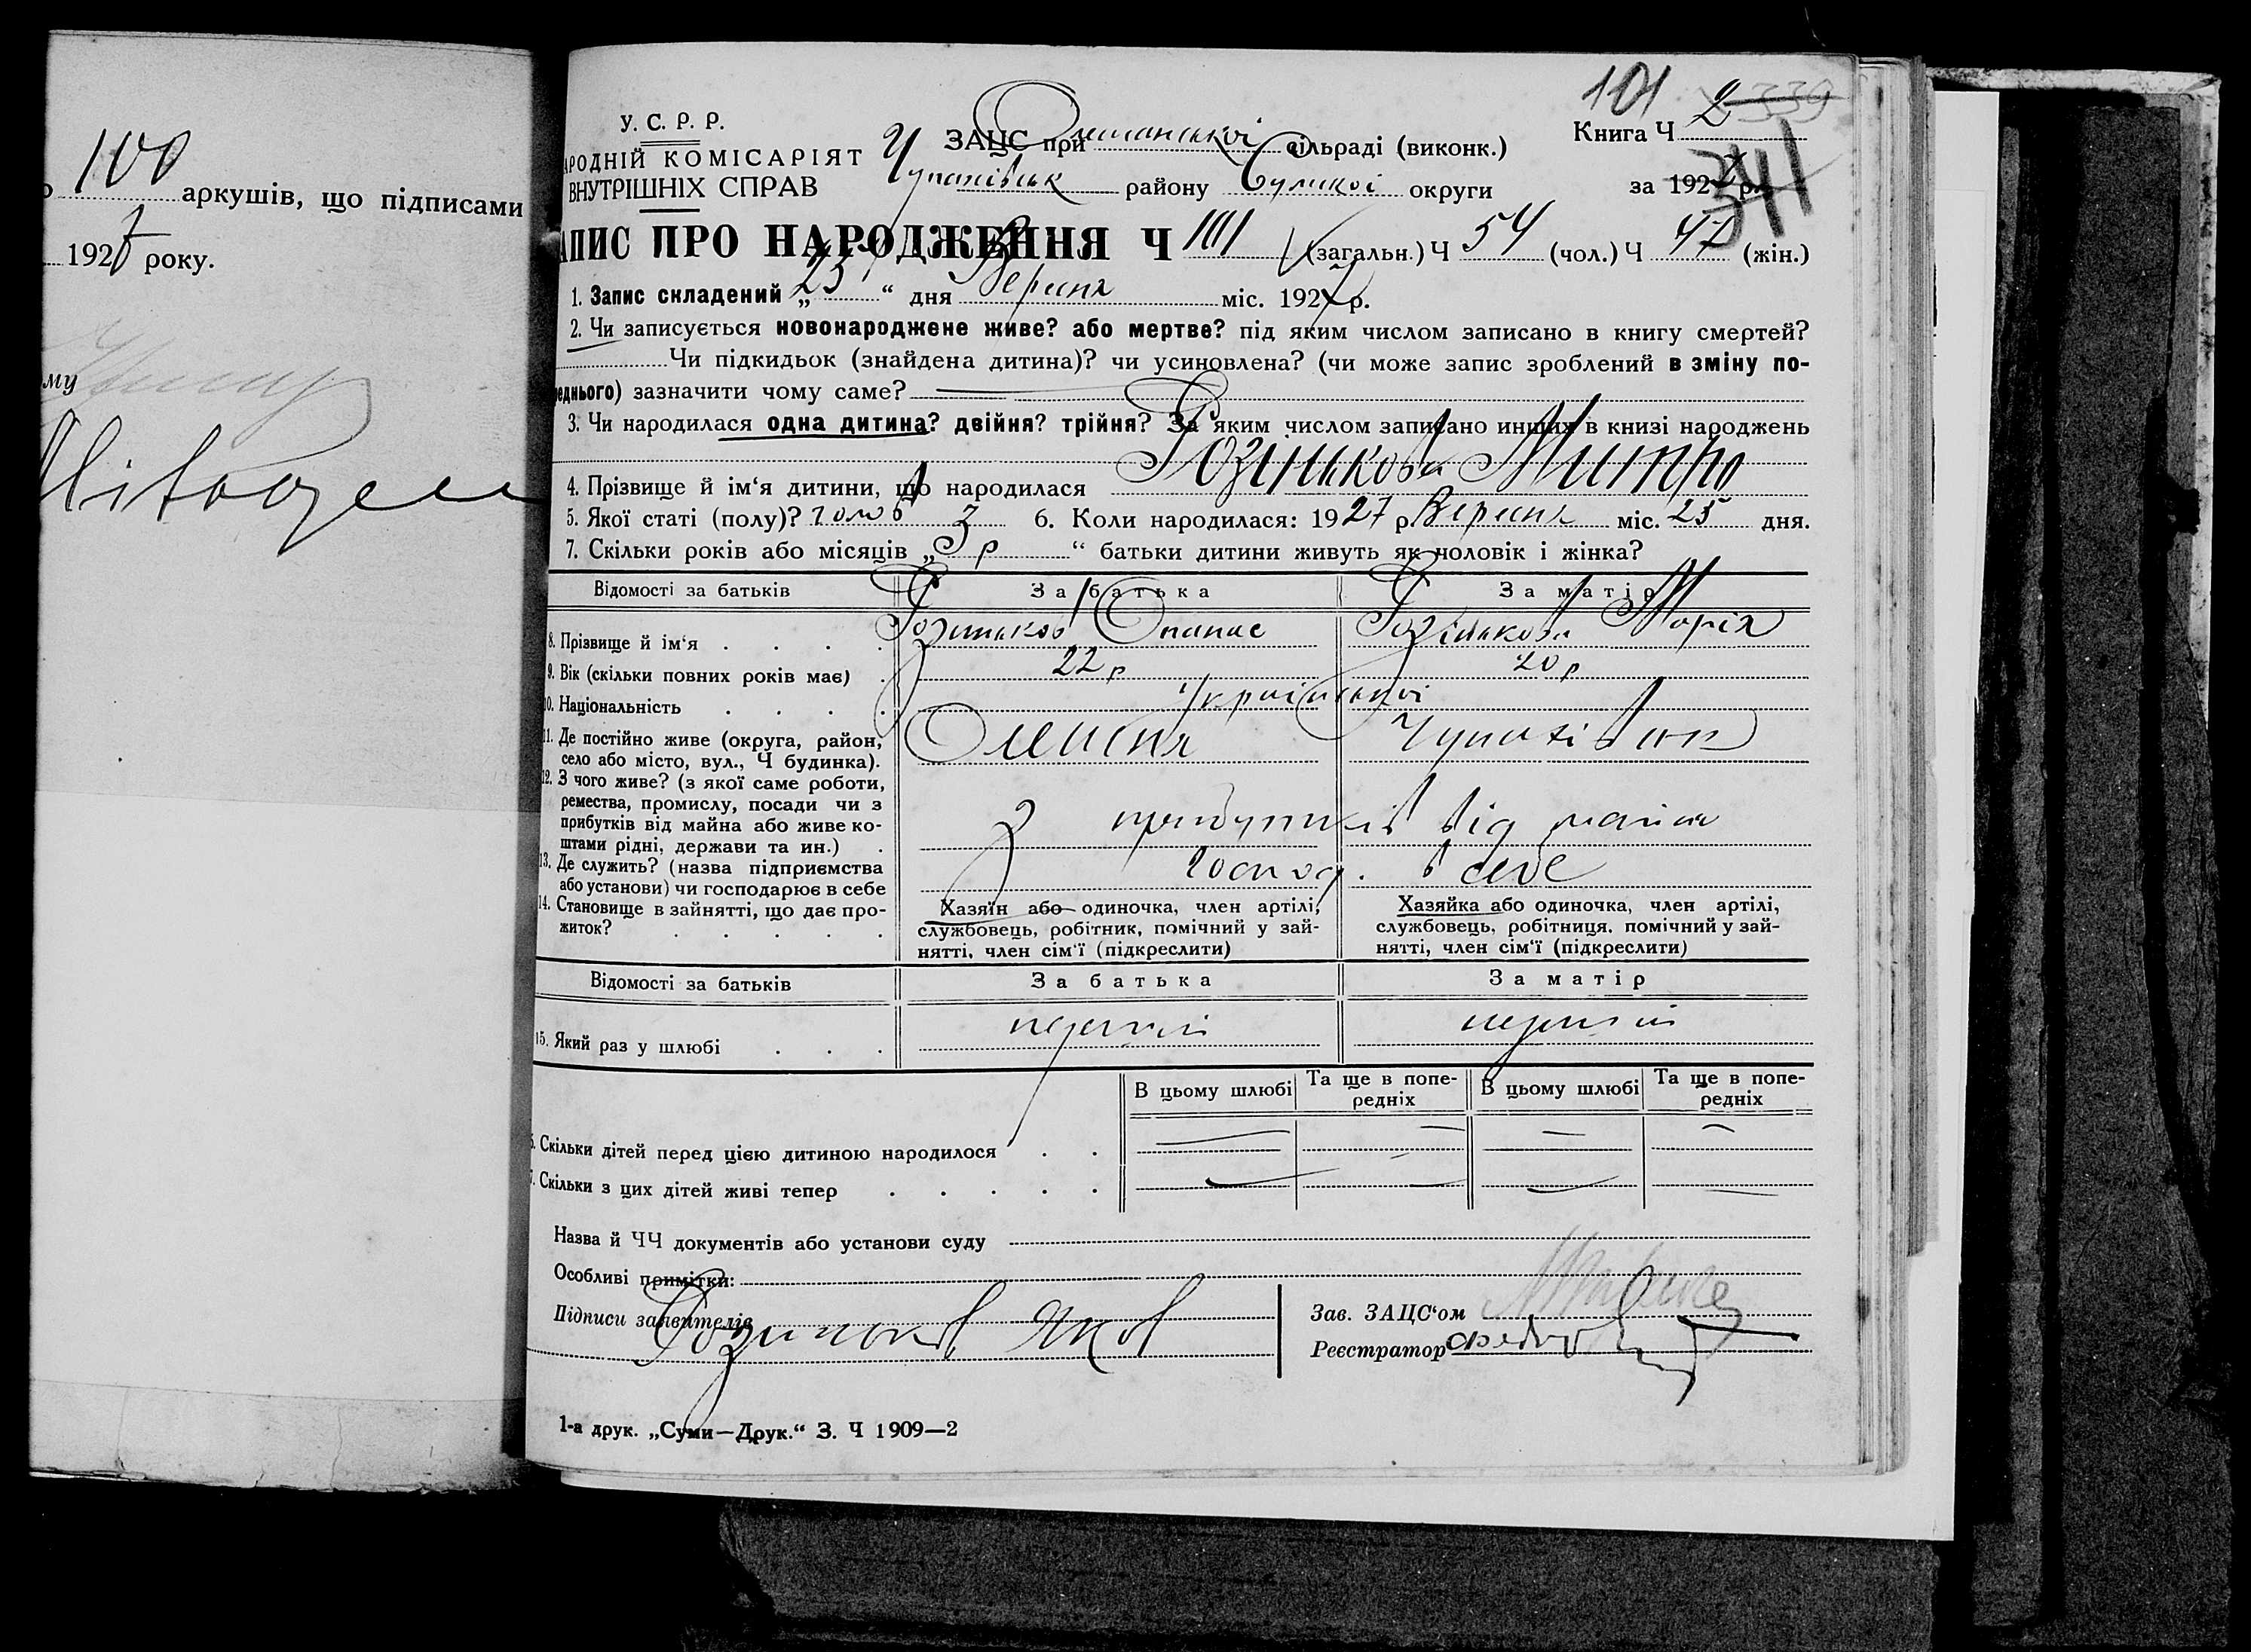 100
аркушів, що підписами
1927 року.
му
101
У. С. Р. Р.
ЗАЦС при Олешанської сільраді (виконк.)
Книга Ч 2 339
АРОДНІЙ КОМІСАРІЯТ
ВНУТРІШНІХ СПРАВ
Чупахівськ району Сумської округи
за 1927 р.
341
АПИС ПРО НАРОДЖЕННЯ Ч 101 (загальн.) Ч 54 (чол.) Ч 47 (жін.)
1. Запис складений „25“ дня Вересня міс. 1927 р.
2. Чи записується новонароджене живе? або мертве? під яким числом записано в книгу смертей?
Чи підкидьок (знайдена дитина)? чи усиновлена? (чи може запис зроблений в зміну по-
реднього) зазначити чому саме?
3. Чи народилася одна дитина? двійня? трійня? За яким числом записано инших в книзі народжень
4. Прізвище й ім‘я дитини, що народилася Розінькова Митро
5. Якої статі (полу)? чолов 3 6. Коли народилася: 1927 р Вересня міс. 25 дня.
7. Скільки років або місяців „3 р“ батьки дитини живуть як чоловік і жінка?
Відомості за батьків За батька За матір
8. Прізвище й ім‘я Розиньков Опанас Розінькова Марія
9. Вік (скільки повних років має) 22 р 20 р
10. Національність Української
11. Де постійно живе (округа, район,
село або місто, вул., Ч будинка).
Олешня
12. З чого живе? (з якої саме роботи,
ремества, промислу, посади чи з
прибутків від майна або живе ко-
штами рідні, держави та ин.)
З прибутків від майна
13. Де служить? (назва підприємства
або установи) чи господарює в себе
господ. в себе
14. Становище в зайнятті, що дає про-
житок?
Хазяїн або одиночка, член артілі,
службовець, робітник, помічний у зай-
нятті, член сім‘ї (підкреслити)
Хазяйка або одиночка, член артілі,
службовець, робітниця, помічний у зай-
нятті, член сім‘ї (підкреслити)
Відомості за батьків За батька За матір
15. Який раз у шлюбі
В цьому шлюбі Та ще в попе-
редніх
В цьому шлюбі Та ще в попе-
редніх
Скільки дітей перед цією дитиною народилося
Скільки з цих дітей живі тепер
Назва й ЧЧ документів або установи суду
Особливі примітки:
Підписи заявителів Розиньков Яков
Зав. ЗАЦС‘ом
Реєстратор
1-а друк. „Суми—Друк.“ З. Ч 1909—2